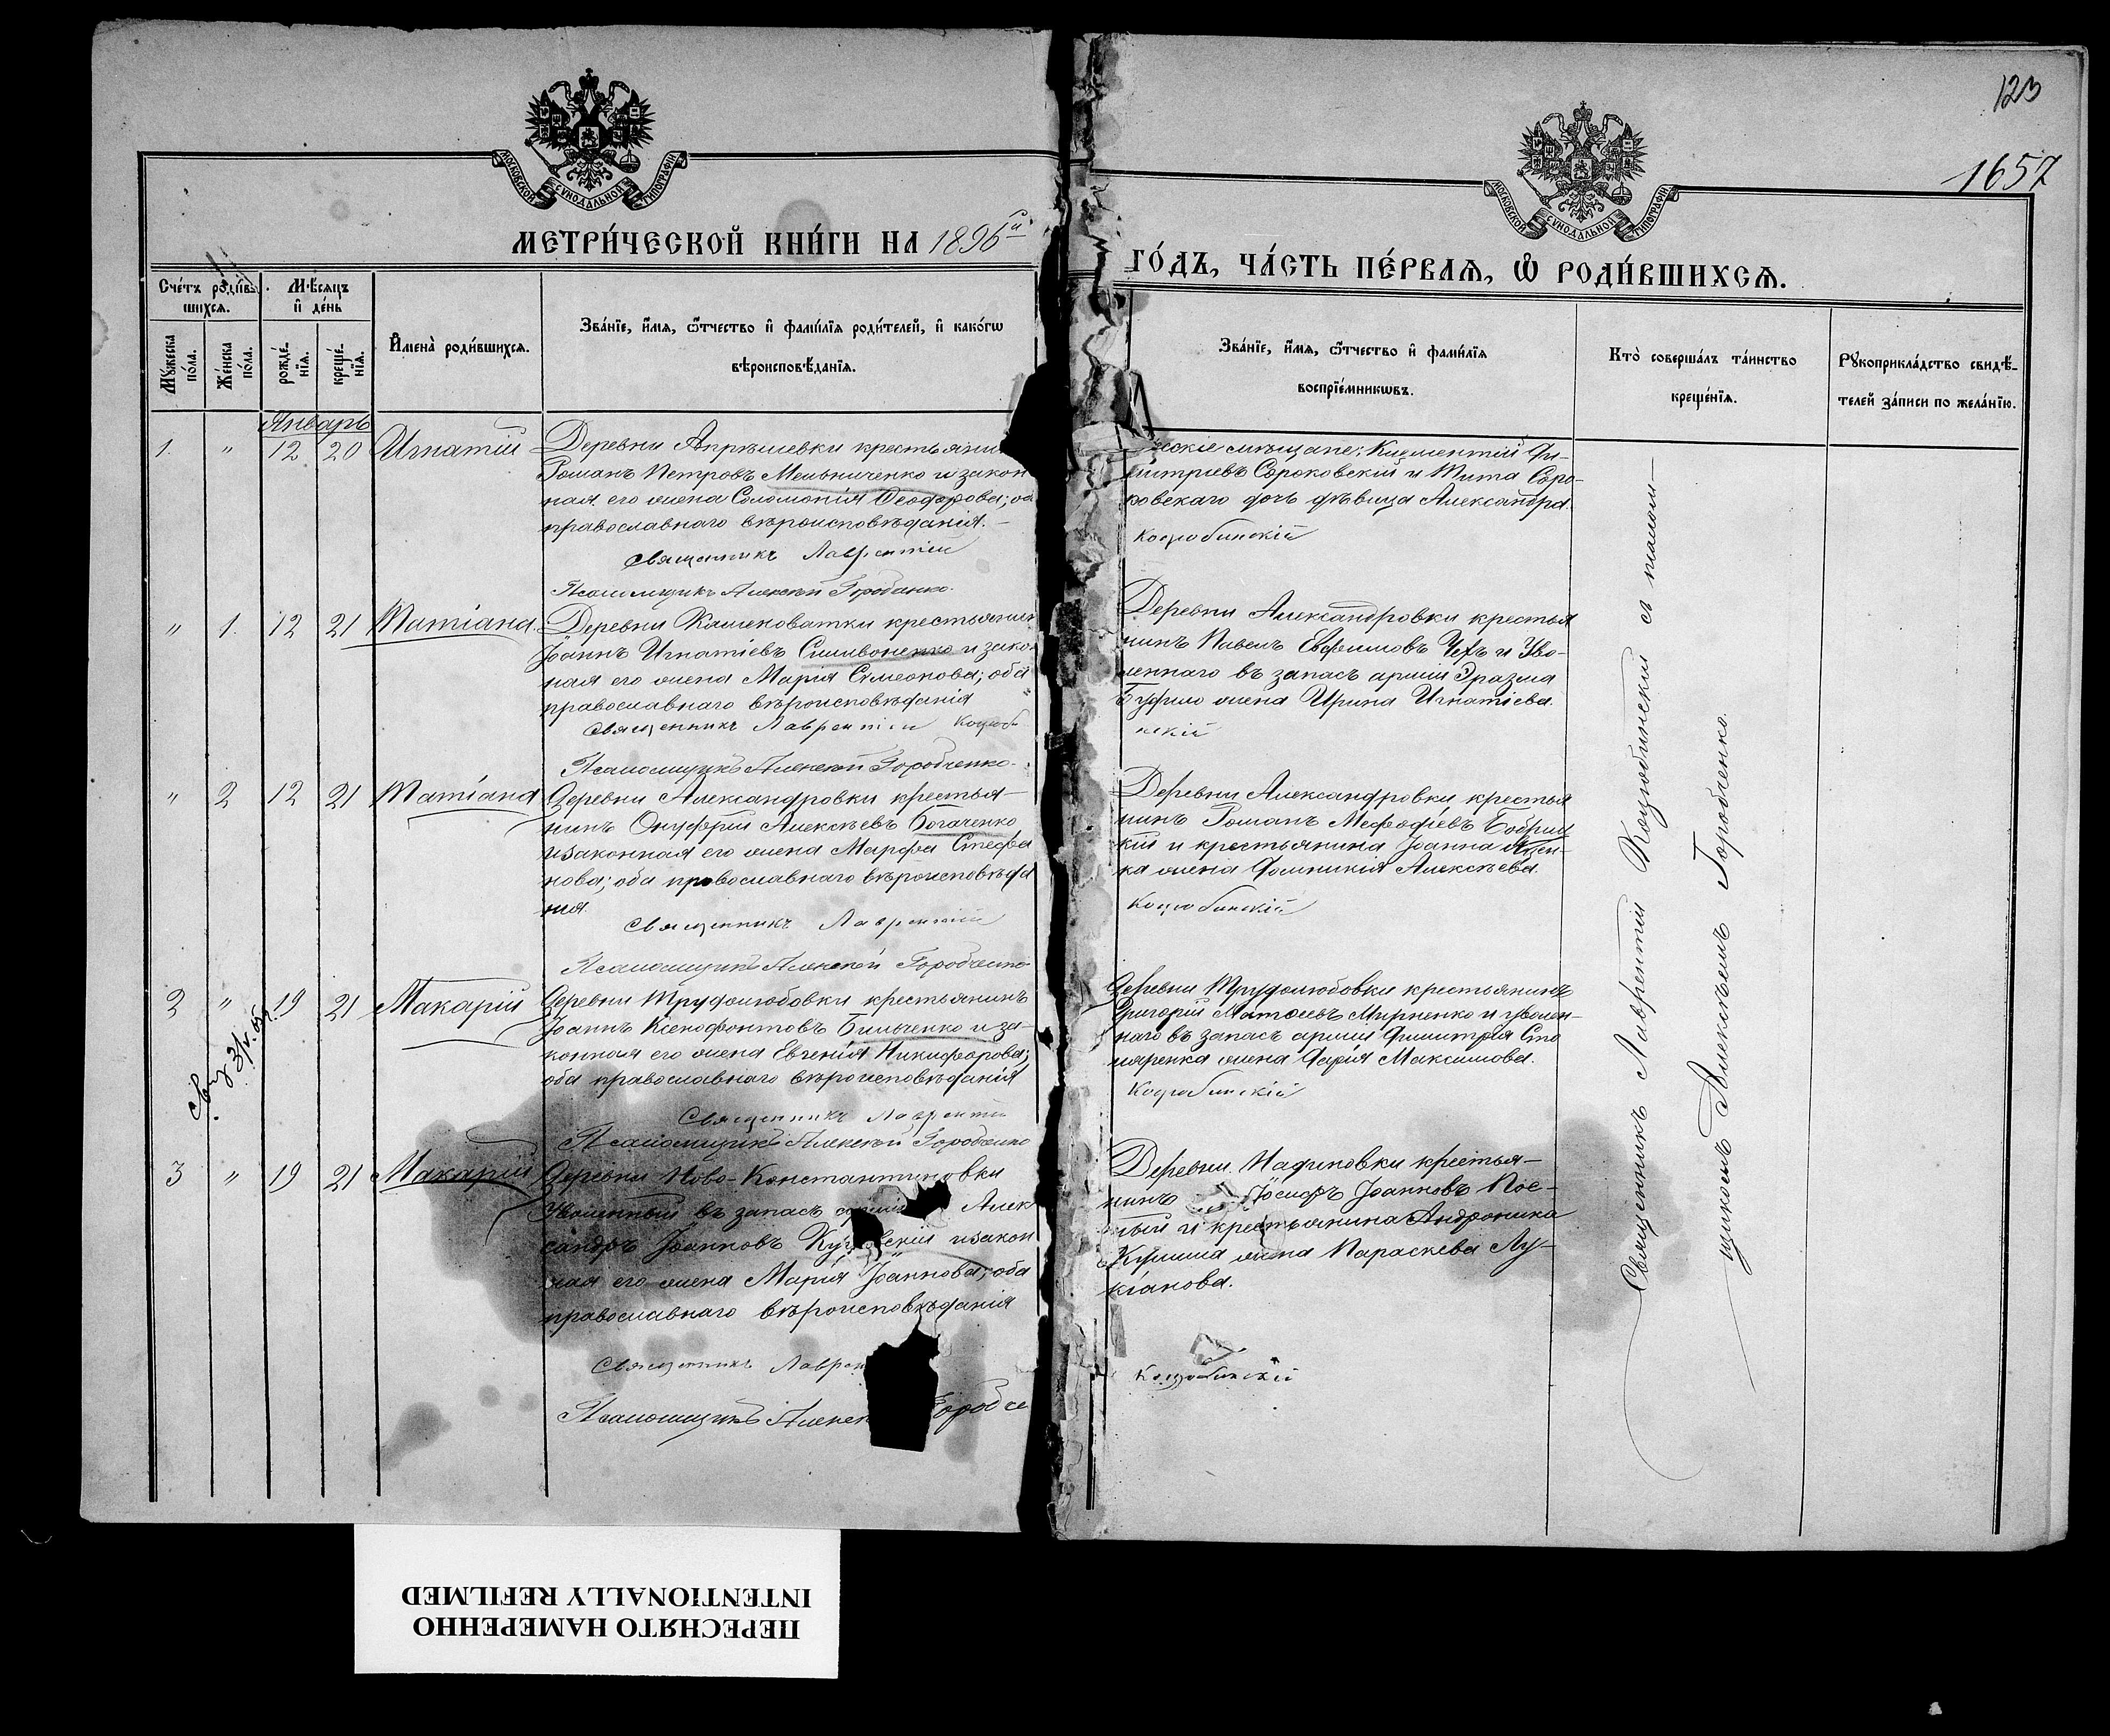 123
1657
МОСКОВСКОЙ СѴНОДАЛЬНОЙ ТИПОГРАФІИ
МОСКОВСКОЙ СѴНОДАЛЬНОЙ ТИПОГРАФІИ
МЕТРИ́ЧЕСКОЙ КНИ́ГИ НА 1896й
ГО́ДЪ, ЧА́СТЬ ПЕ́РВАѦ, Ѽ РОДИ́ВШИХСѦ.
Сче́тъ роди́в-
шихсѧ.
Мѣ́сѧцъ
и҆ де́нь
Мꙋ́жеска по́ла.
Же́нска по́ла.
рожде́-нїѧ.
креще́-нїѧ.
И҆мена̀ роди́вшихсѧ.
Зва́нїе, и҆́мѧ, ѻ҆́тчество и҆ фами́лїѧ роди́телей, и҆ како́гѡ
вѣроисповѣ́данїѧ.
Зва́нїе, и҆́мѧ, ѻ҆́тчество и҆ фами́лїѧ
воспрїе́мникѡвъ.
Кто̀ соверша́лъ та́инство
креще́нїѧ.
Рꙋкоприкла́дство свидѣ́-
телей за́писи по жела́нїю.
Январь
1. " 12 20 Игнатій
Деревни Апрышевки крестьянин
Романъ Петровъ Мельниченко и закон
ная его жена Соломонія Ѳеодорова; оба
православнаго вѣроисповѣданія.
Священникъ Лаврентій
Псаломщикъ Алексѣй Горобченко.
ские мѣщане: Климентій Ди-
митріевъ Сороковскій и Тита Соро-
ковскаго дочь дѣвица Александра.
Коцюбинскій
" 1. 12 21 Татіана.
Деревни Каменоватки крестьянин
Іоаннъ Игнатіевъ Силивоненко и закон
ная его жена Марія Симеонова; оба
православнаго вѣроисповѣданія
Священникъ Лаврентій Коцюби
Псаломщикъ Алексѣй Горобченко.
Деревни Александровки крестья
нинъ Павелъ Евфимовъ Чехъ и Уво-
леннаго въ запасъ арміи Эразма
жена Ирина Игнатіева.
нскій
" 2 12 21 Татіана
Деревни Александровки крестья-
нинъ Онуфрій Алексѣевъ Богаченко
и законная его жена Марфа Стефа
нова; оба православнаго вѣроисповѣда
нія.
Священникъ Лаврентій
Псаломщикъ Алексѣй Горобченко
Деревни Александровки крестья
нинъ Романъ Меѳодіевъ Бобриц
кій и крестьянина Іоанна
ка жена Домникія Алексѣева.
Коцюбинскій
2 " 19 21 Макарій
Деревни Трудолюбовки крестьянинъ
Іоаннъ Ксенофонтовъ Бильченко и за-
конная его жена Евгенія Никифорова;
оба православнаго вѣроисповѣданія
Священникъ Лаврентій
Псаломщикъ Алексѣй Горобченко
Деревни Трудолюбовки крестьянинъ
Григорій Матѳіевъ Мирненко и уволен-
наго въ запасъ арміи Димитрія Сто
ляренка жена Дарія Максимова.
Коцюбинскій
3 " 19 21 Макарій
Деревни Ново-Константиновки
Уволенный въ запасъ арміи Алек
сандръ Іоанновъ и закон
ная его жена Марія Іоаннова; оба
православнаго вѣроисповѣданія
Священникъ Лаврен
Псаломщикъ Алексѣ Горобче
Деревни Надиновки крестья-
нинъ Іосифъ Іоанновъ
и крестьянина Андроника
жена Параскева Лу-
кіанова.
Коцюбинскій
Священникъ Лаврентій Коцюбинскій съ псалом-
щикомъ Алексѣемъ Горобченко.
ПЕРЕСНЯТО НАМЕРЕННО
INTENTIONALLY REFILMED